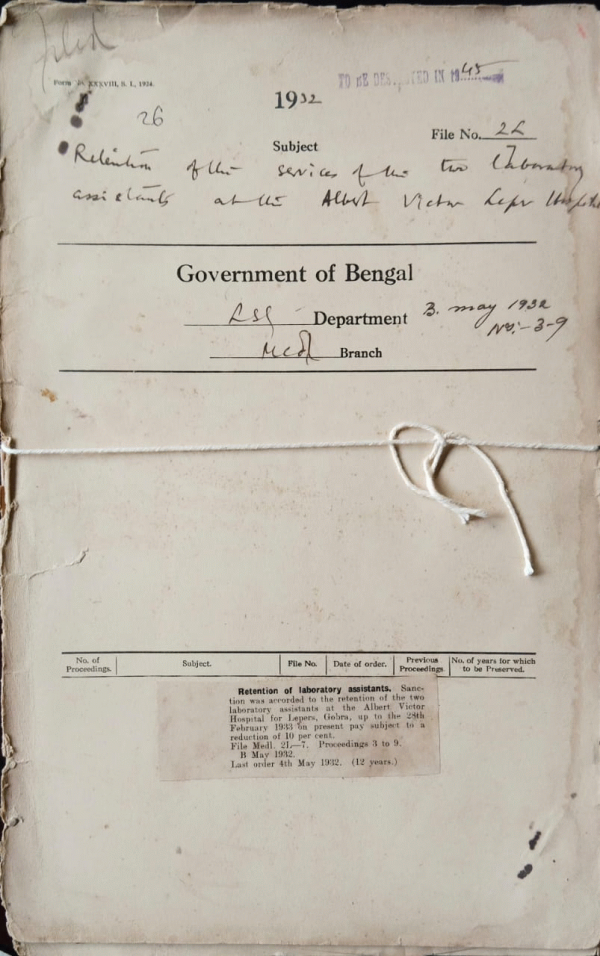 filed
Form No. XXXVIII, S. I., 1924.
TO BE DESTROYED IN 1945
26
1932
File No. 2L
7
Subject
Retention of the services of the two laboratory
assistants at the Albert Victor Leper Hospital
Government of Bengal
LSG Department
B. May 1932
Nos:-3-9
Medl Branch
No. of Proceedings. Subject. File No. Date of order. Previous Proceedings. No. of years for which to be Preserved.
Retention of laboratory assistants. Sanc-
tion was accorded to the retention of the two
laboratory assistants at the Albert Victor
Hospital for Lepers, Gobra, up to the 28th
February 1933 on present pay subject to a
reduction of 10 per cent.
File Medl. 2L—7. Proceedings 3 to 9.
B May 1932.
Last order 4th May 1932. (12 years.)